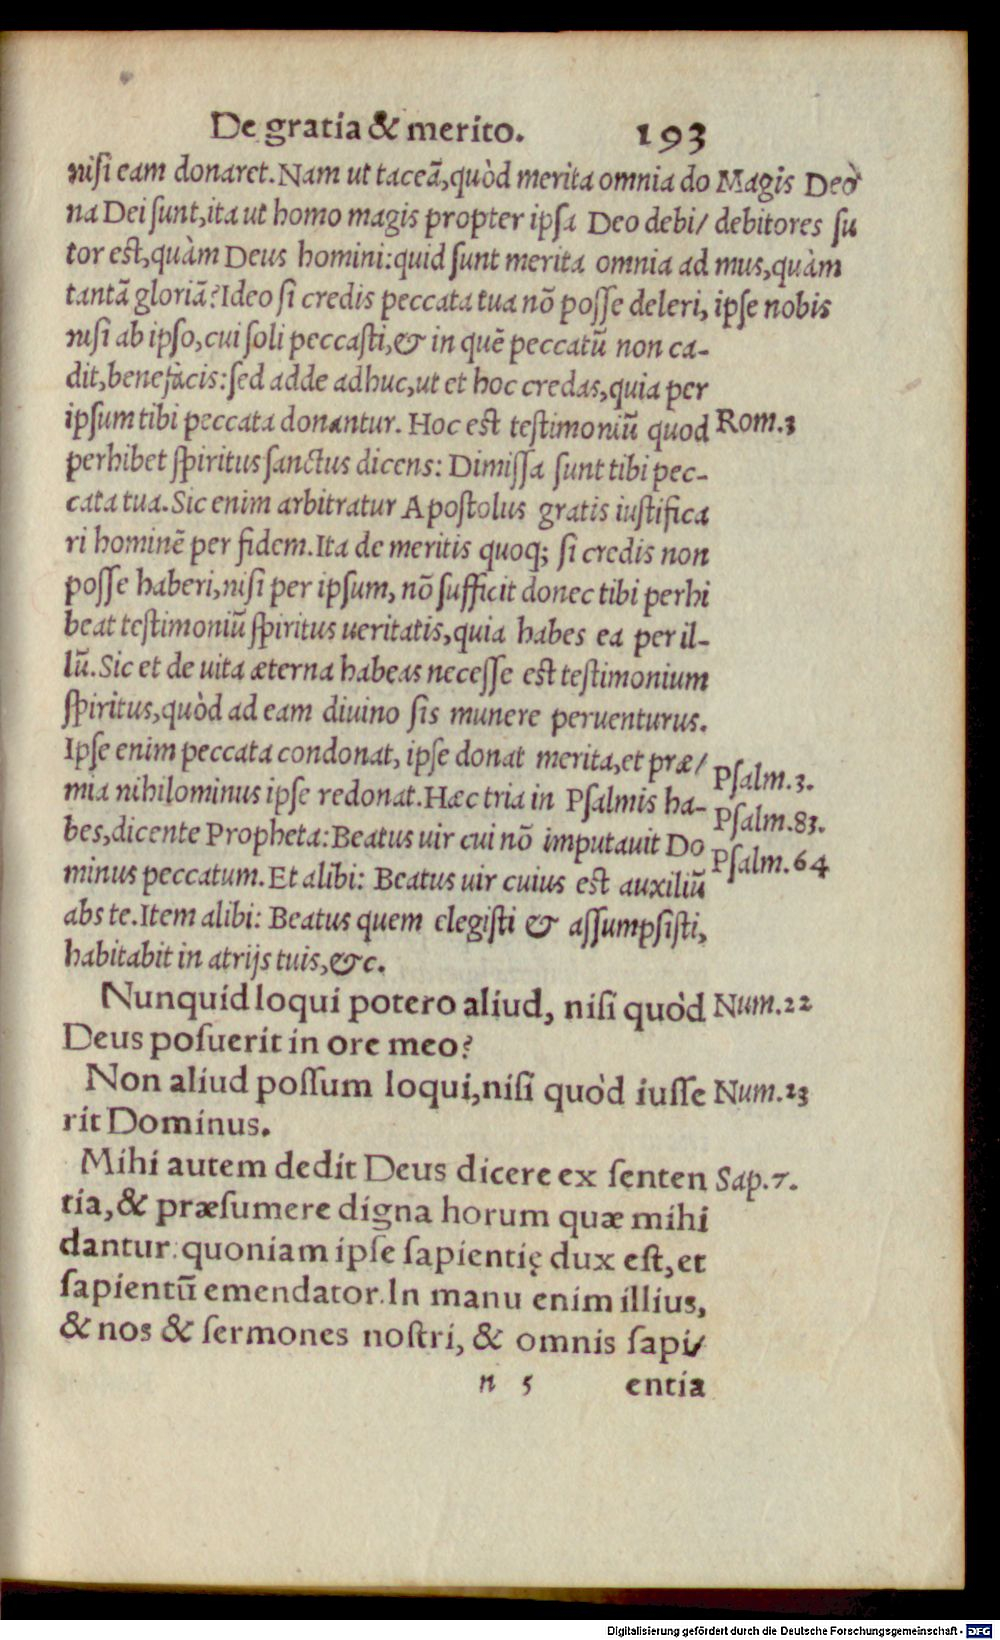 De gratia & merito. 193
nisi eam donaret. Nam ut taceā, quòd merita omnia do
na Dei sunt, ita ut homo magis propter ipsa Deo debi/
tor est, quàm Deus homini: quid sunt merita omnia ad
tantā gloriā? Ideo si credis peccata tua nō posse deleri,
nisi ab ipso, cui soli peccasti, & in quē peccatū non ca-
dit, benefacis: sed adde adhuc, ut et hoc credas, quia per
ipsum tibi peccata donantur. Hoc est testimoniū quod
perhibet spiritus sanctus dicens: Dimissa sunt tibi pec-
cata tua. Sic enim arbitratur Apostolus gratis iustifica
ri hominē per fidem. Ita de meritis quoq; si credis non
posse haberi, nisi per ipsum, nō sufficit donec tibi perhi
beat testimoniū spiritus ueritatis, quia habes ea per il-
lū. Sic et de uita æterna habeas necesse est testimonium
spiritus, quòd ad eam diuino sis munere peruenturus.
Ipse enim peccata condonat, ipse donat merita, et præ/
mia nihilominus ipse redonat. Hæc tria in Psalmis ha-
bes, dicente Propheta: Beatus uir cui nō imputauit Do
minus peccatum. Et alibi: Beatus uir cuius est auxiliū
abs te. Item alibi: Beatus quem elegisti & assumpsisti,
habitabit in atrijs tuis, &c.
Nunquid loqui potero aliud, nisi quòd
Deus posuerit in ore meo?
Non aliud possum loqui, nisi quòd iusse
rit Dominus.
Mihi autem dedit Deus dicere ex senten
tia, & præsumere digna horum quæ mihi
dantur: quoniam ipse sapientię dux est, et
sapientū emendator. In manu enim illius,
& nos & sermones nostri, & omnis sapi/
n 5 entia
Magis Deo
debitores su
mus, quàm
ipse nobis
Rom.3
Psalm.3.
Psalm.83.
Psalm.64
Num.22
Num.23
Sap.7.
Digitalisierung gefördert durch die Deutsche Forschungsgemeinschaft - DFG